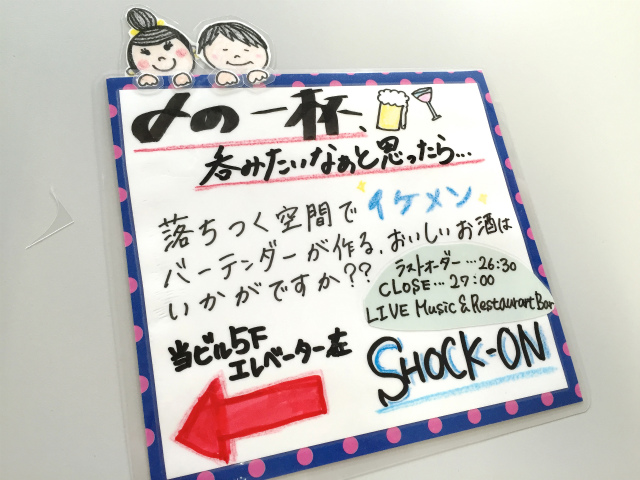 〆の一杯、
呑みたいなぁと思ったら…
落ちつく空間でイケメン
バーテンダーが作る、おいしいお酒は
いかがですか??
ラストオーダー…26:30
CLOSE…27:00
LIVE Music & Restaurant Bar
SHOCK-ON
当ビル5F
エレベーター左